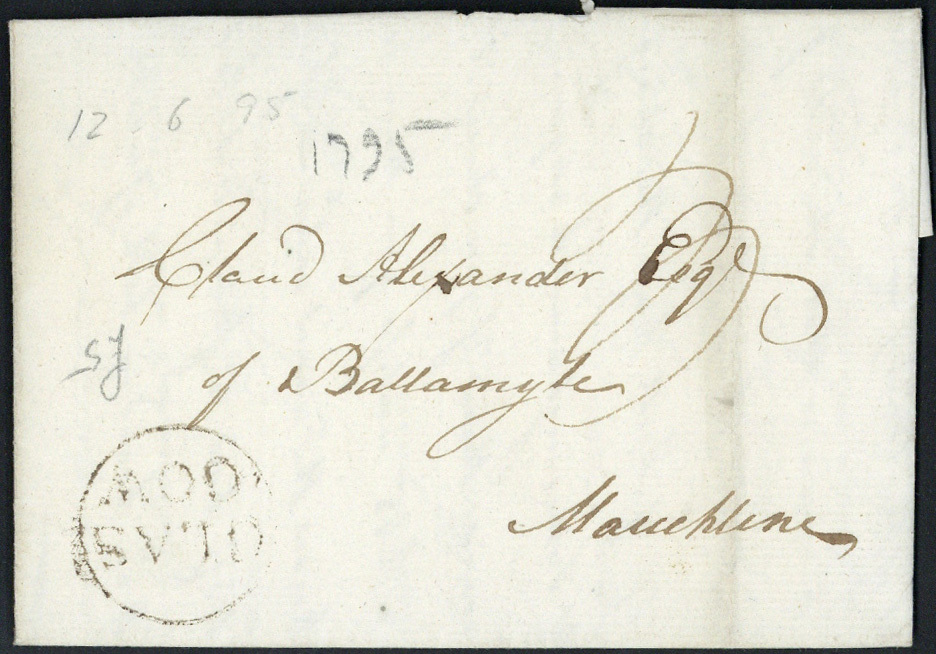 12 . 6 95
1795
Claud Alexander Esqr
of Ballamyle
Mauchline
GLAS
GOW